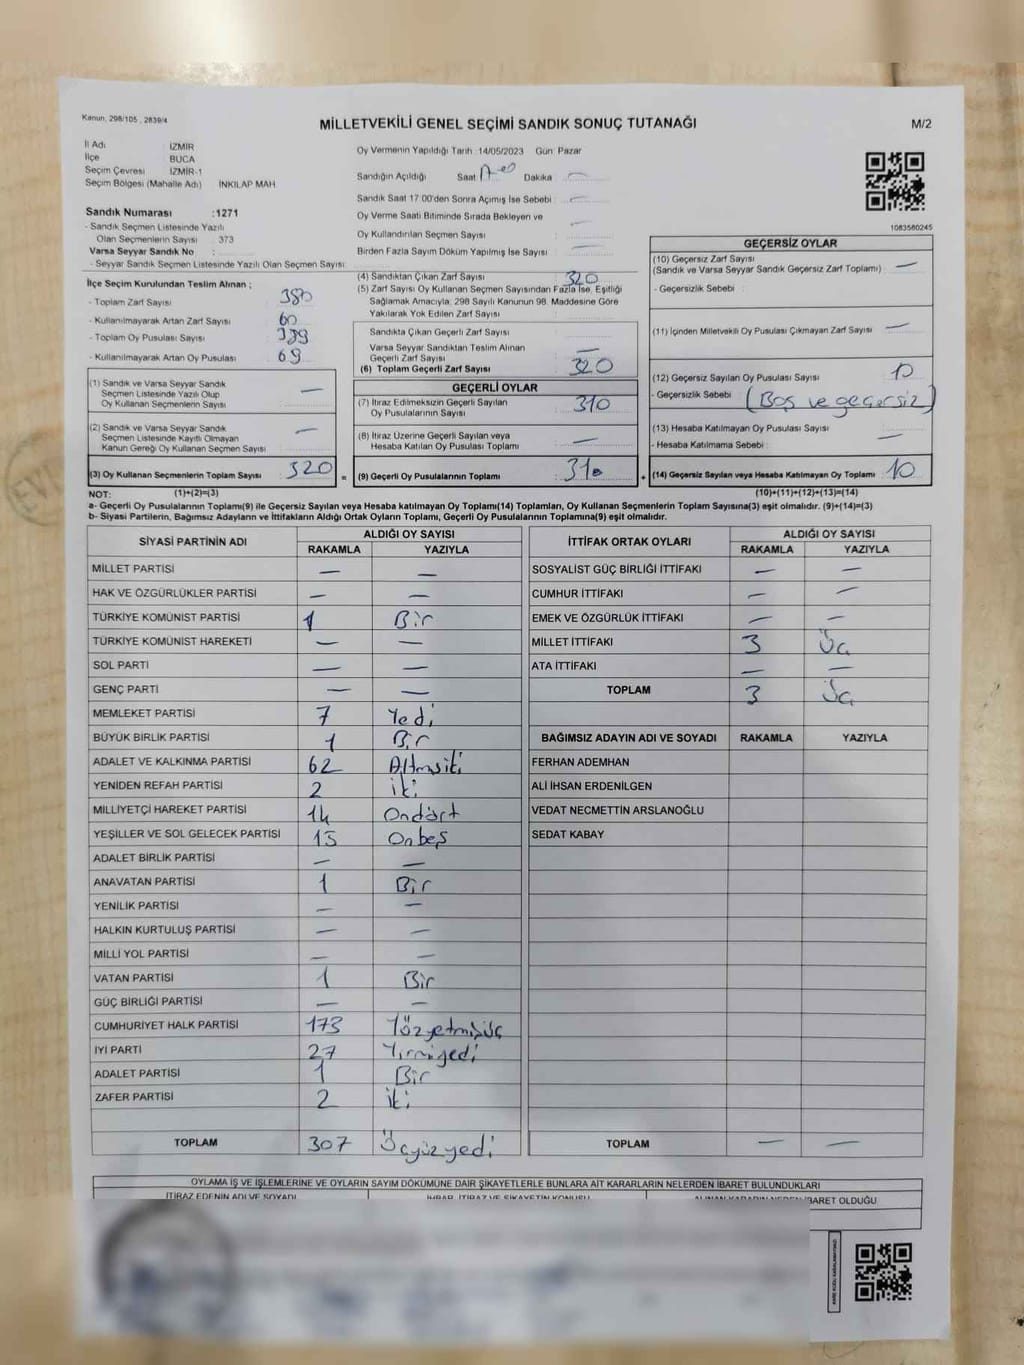 Kanun, 298/105 , 2839/4
MİLLETVEKİLİ GENEL SEÇİMİ SANDIK SONUÇ TUTANAĞI
M/2
İl Adı : İZMİR
İlçe BUCA
Seçim Çevresi İZMİR-1
Seçim Bölgesi (Mahalle Adı) İNKILAP MAH
Oy Vermenin Yapıldığı Tarih 14/05/2023 Gün: Pazar
Sandığın Açıldığı Saat Dakika —
Sandık Saat 17.00'den Sonra Açımış İse Sebebi : —
Oy Verme Saati Bitiminde Sırada Bekleyen ve
Oy Kullandırılan Seçmen Sayısı —
Birden Fazla Sayım Döküm Yapılmış İse Sayısı —
1083580245
Sandık Numarası :1271
- Sandık Seçmen Listesinde Yazılı
Olan Seçmenlerin Sayısı : 373
Varsa Seyyar Sandık No
- Seyyar Sandık Seçmen Listesinde Yazılı Olan Seçmen Sayısı
İlçe Seçim Kurulundan Teslim Alınan ;
- Toplam Zarf Sayısı 380
- Kullanılmayarak Artan Zarf Sayısı 60
- Toplam Oy Pusulası Sayısı
- Kullanılmayarak Artan Oy Pusulası 69
(1) Sandık ve Varsa Seyyar Sandık
Seçmen Listesinde Yazılı Olup
Oy Kullanan Seçmenlerin Sayısı —
(2) Sandık ve Varsa Seyyar Sandık
Seçmen Listesinde Kayıtlı Olmayan
Kanun Gereği Oy Kullanan Seçmen Sayısı —
(3) Oy Kullanan Seçmenlerin Toplam Sayısı 320 =
(4) Sandıktan Çıkan Zarf Sayısı 320
(5) Zarf Sayısı Oy Kullanan Seçmen Sayısından Fazla İse, Eşitliği
Sağlamak Amacıyla, 298 Sayılı Kanunun 98. Maddesine Göre
Yakılarak Yok Edilen Zarf Sayısı
Sandıkta Çıkan Geçerli Zarf Sayısı
Varsa Seyyar Sandıktan Teslim Alınan
Geçerli Zarf Sayısı —
(6) Toplam Geçerli Zarf Sayısı 320
GEÇERLİ OYLAR
(7) İtiraz Edilmeksizin Geçerli Sayılan
Oy Pusulalarının Sayısı 310
(8) İtiraz Üzerine Geçerli Sayılan veya
Hesaba Katılan Oy Pusulası Toplamı —
(9) Geçerli Oy Pusulalarının Toplamı 310 +
GEÇERSİZ OYLAR
(10) Geçersiz Zarf Sayısı
(Sandık ve Varsa Seyyar Sandık Geçersiz Zarf Toplamı) —
- Geçersizlik Sebebi :
(11) İçinden Milletvekili Oy Pusulası Çıkmayan Zarf Sayısı —
(12) Geçersiz Sayılan Oy Pusulası Sayısı 10
- Geçersizlik Sebebi : (Boş ve geçersiz)
(13) Hesaba Katılmayan Oy Pusulası Sayısı —
- Hesaba Katılmama Sebebi :
(14) Geçersiz Sayılan veya Hesaba Katılmayan Oy Toplamı 10
NOT: (1)+(2)=(3) (10)+(11)+(12)+(13)=(14)
a- Geçerli Oy Pusulalarının Toplamı(9) ile Geçersiz Sayılan veya Hesaba katılmayan Oy Toplamı(14) Toplamları, Oy Kullanan Seçmenlerin Toplam Sayısına(3) eşit olmalıdır. (9)+(14)=(3)
b- Siyasi Partilerin, Bağımsız Adayların ve İttifakların Aldığı Ortak Oyların Toplamı, Geçerli Oy Pusulalarının Toplamına(9) eşit olmalıdır.
SİYASİ PARTİNİN ADI ALDIĞI OY SAYISI
RAKAMLA YAZIYLA
MİLLET PARTİSİ — —
HAK VE ÖZGÜRLÜKLER PARTİSİ — —
TÜRKİYE KOMÜNİST PARTİSİ 1 Bir
TÜRKİYE KOMÜNİST HAREKETİ — —
SOL PARTİ — —
GENÇ PARTİ — —
MEMLEKET PARTİSİ 7 Yedi
BÜYÜK BİRLİK PARTİSİ 1 Bir
ADALET VE KALKINMA PARTİSİ 62 Altmışiki
YENİDEN REFAH PARTİSİ 2 İki
MİLLİYETÇİ HAREKET PARTİSİ 14 Ondört
YEŞİLLER VE SOL GELECEK PARTİSİ 15 Onbeş
ADALET BİRLİK PARTİSİ — —
ANAVATAN PARTİSİ 1 Bir
YENİLİK PARTİSİ — —
HALKIN KURTULUŞ PARTİSİ — —
MİLLİ YOL PARTİSİ — —
VATAN PARTİSİ 1 Bir
GÜÇ BİRLİĞİ PARTİSİ — —
CUMHURİYET HALK PARTİSİ 173 Yüzyetmişüç
İYİ PARTİ 27 Yirmiyedi
ADALET PARTİSİ 1 Bir
ZAFER PARTİSİ 2 İki
TOPLAM 307 Üçyüzyedi
İTTİFAK ORTAK OYLARI ALDIĞI OY SAYISI
RAKAMLA YAZIYLA
SOSYALİST GÜÇ BİRLİĞİ İTTİFAKI — —
CUMHUR İTTİFAKI — —
EMEK VE ÖZGÜRLÜK İTTİFAKI — —
MİLLET İTTİFAKI 3 Üç
ATA İTTİFAKI — —
TOPLAM 3 Üç
BAĞIMSIZ ADAYIN ADI VE SOYADI RAKAMLA YAZIYLA
FERHAN ADEMHAN
ALİ İHSAN ERDENİLGEN
VEDAT NECMETTİN ARSLANOĞLU
SEDAT KABAY
TOPLAM — —
OYLAMA İŞ VE İŞLEMLERİNE VE OYLARIN SAYIM DÖKÜMÜNE DAİR ŞİKAYETLERLE BUNLARA AİT KARARLARIN NELERDEN İBARET BULUNDUKLARI
İTİRAZ EDENİN ADI VE SOYADI İHBAR, İTİRAZ VE ŞİKAYETİN KONUSU ALINAN KARARIN NEDEN İBARET OLDUĞU